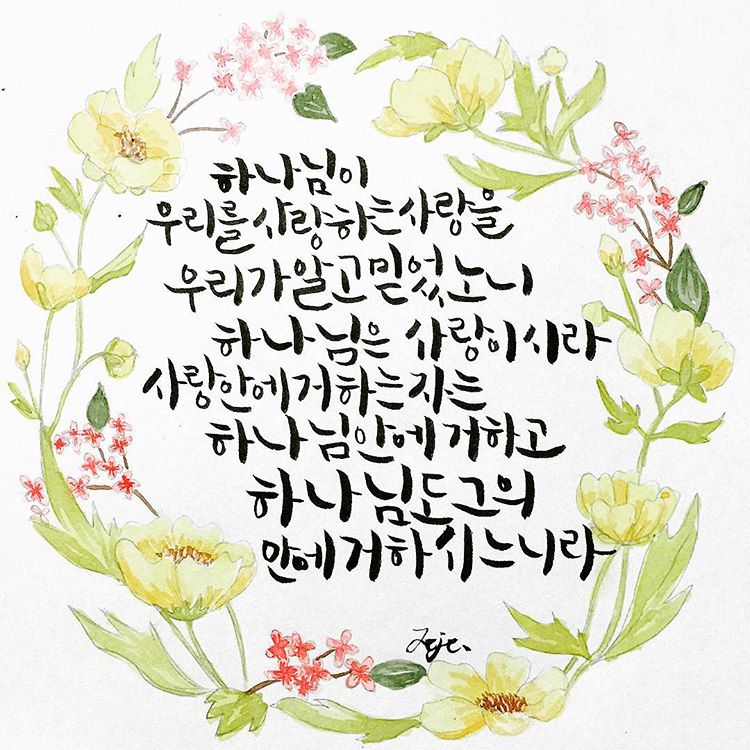 하나님이
우리를 사랑하는 사랑을
우리가 알고 믿었노니
하나님은 사랑이시라
사랑안에 거하는 자는
하나님 안에 거하고
하나님도 그의
안에 거하시느니라
Jeje.